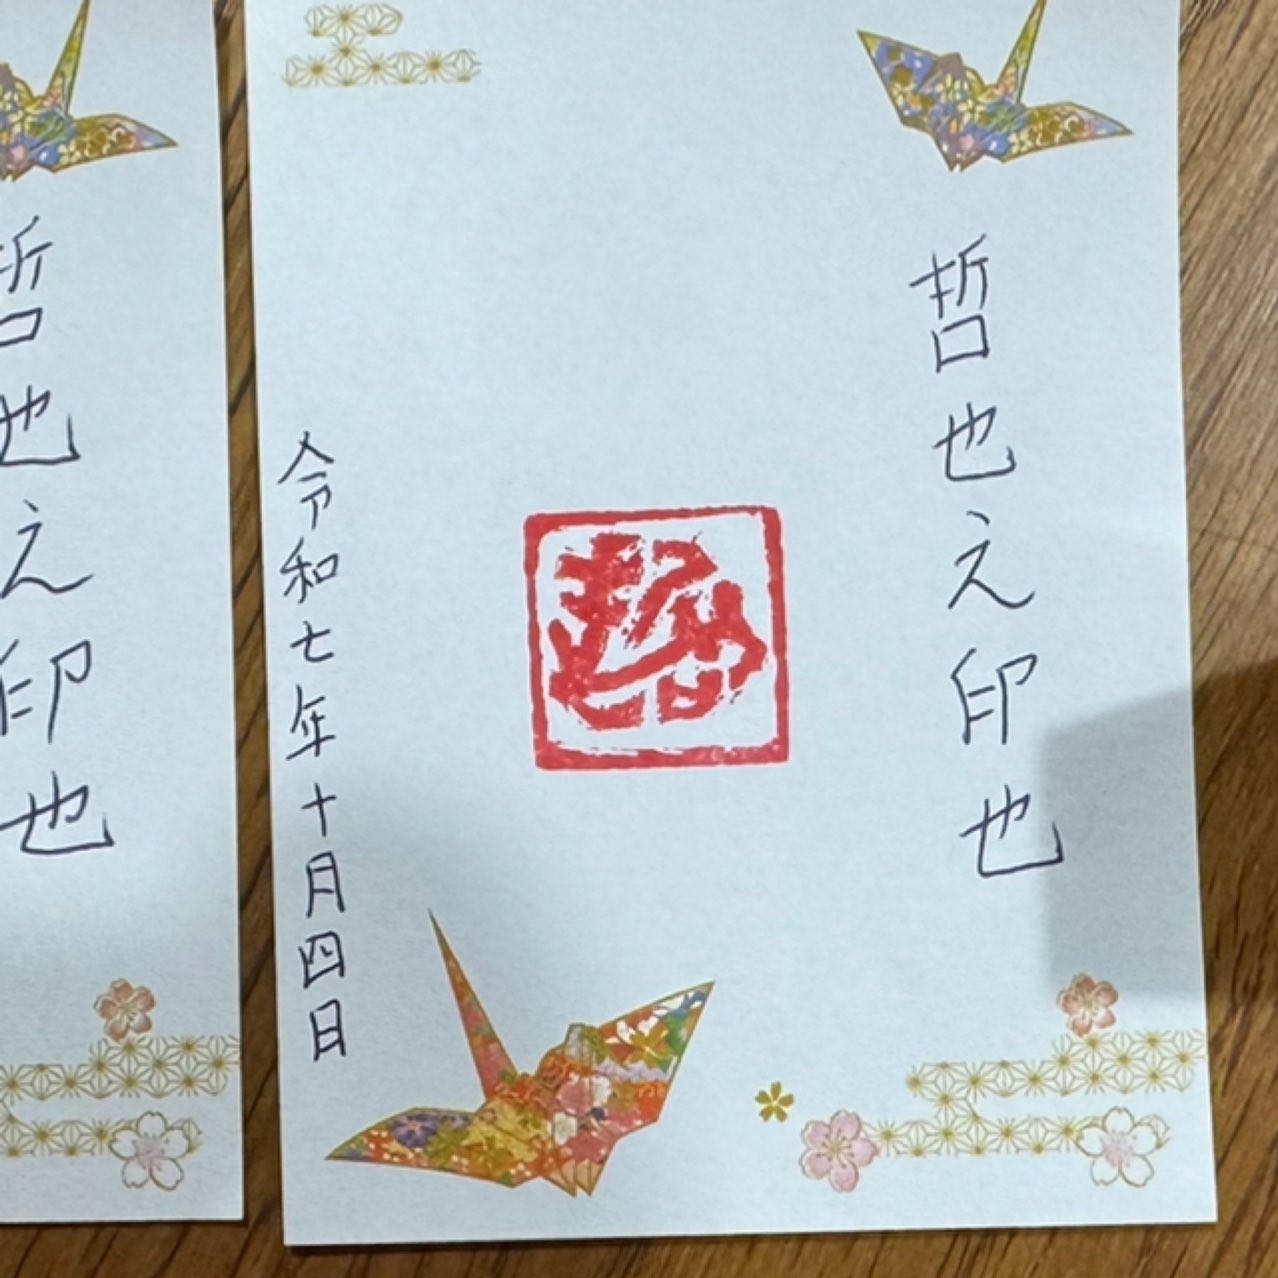 哲也之印也
哲
令和七年十月四日
哲也之印也